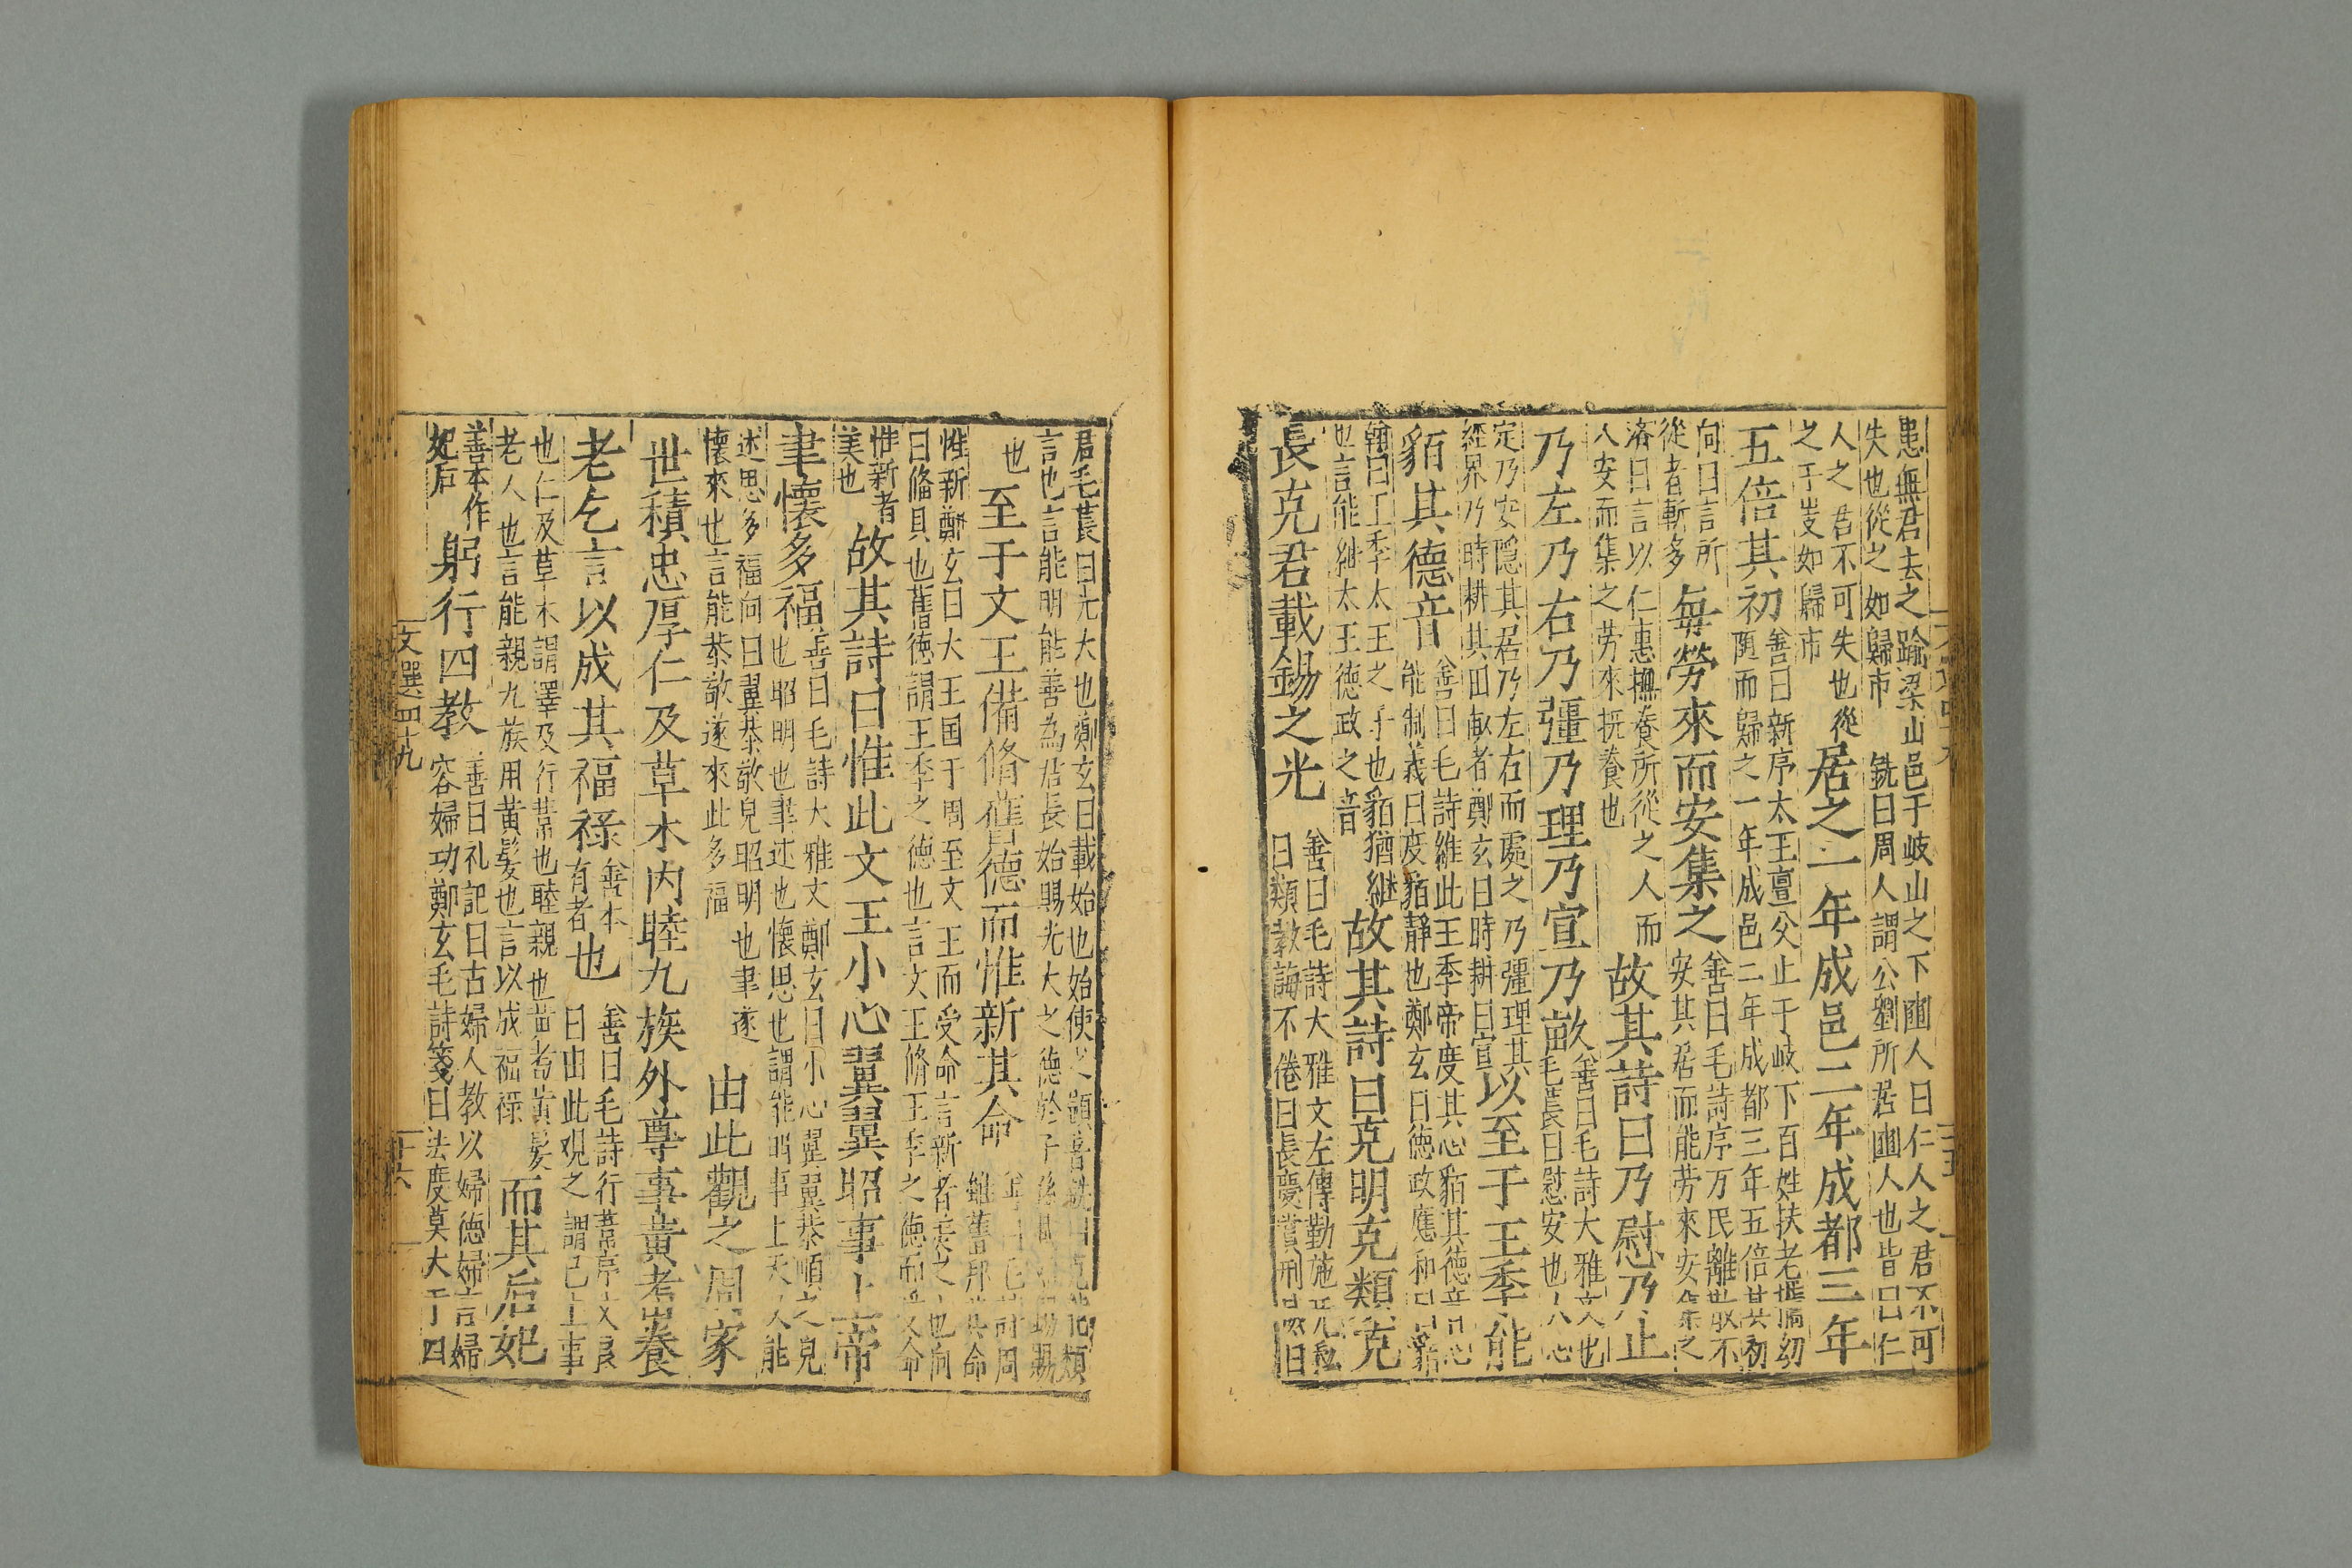 患無君去之踰梁山邑于岐山之下豳人曰仁人之君不可
失也從之如歸市 銑曰周人謂公劉所居豳人也皆曰仁
人之君不可失也從
之于岐如歸市
居之一年成邑二年成都三年
五倍其初
善曰新序太王亶父止于岐下百姓扶老攜幼
隨而歸之一年成邑二年成都三年五倍其初
向曰言所
從者漸多
每勞來而安集之
善曰毛詩序万民離散不
安其居而能劳來安集之
濟曰言以仁惠撫養所從之人而
人安而集之劳來抚養也
故其詩曰乃慰乃止
乃左乃右乃疆乃理乃宣乃畝
善曰毛詩大雅文也
毛萇曰慰安也
定乃安隱其居乃左右而處之乃疆理其
經界乃時耕其田畝者鄭玄曰時耕曰宣
以至于王季能
貊其德音
善曰毛詩維此王季帝度其心貊其德音
能制義曰度貊靜也鄭玄曰德政應和曰貊
翰曰王季太王之子也貊猶継
也言能継太王德政之音
故其詩曰克明克類克
長克君載錫之光
善曰毛詩大雅文左傳勤施无私
曰類教誨不倦曰長慶賞刑威曰
君毛萇曰光大也鄭玄曰載始也始使之顯著
言也言能明能善為君長始賜光大之德於子孫
也
至于文王備脩舊德而惟新其命
惟新鄭玄曰大王国于周至文王而受命言新者美之也向
曰偹具也舊德謂王季之德也言文王脩王季之德而受命
惟新者
美也
故其詩曰惟此文王小心翼翼昭事上帝
聿懷多福
善曰毛詩大雅文鄭玄曰小心翼翼恭順之皃
也昭明也聿述也懷思也謂能明事上天人能
述思多福向曰翼恭敬皃昭明也聿遂
懷來也言能恭敬遂來此多福
由此觀之周家
世積忠厚仁及草木内睦九族外尊事黄耇養
老乞言以成其福祿
善本
有者
也
善曰毛詩行葦序文良
曰由此观之謂已上事
也仁及草木謂澤及行葦也睦親也黄耇黄髪
老人也言能親九族用黄髪也言以成福禄
而其后妃
善本作
妃后
躬行四教
善曰礼記曰古婦人教以婦德婦言婦
容婦功鄭玄毛詩箋曰法度莫大于四
文選四十九
十六